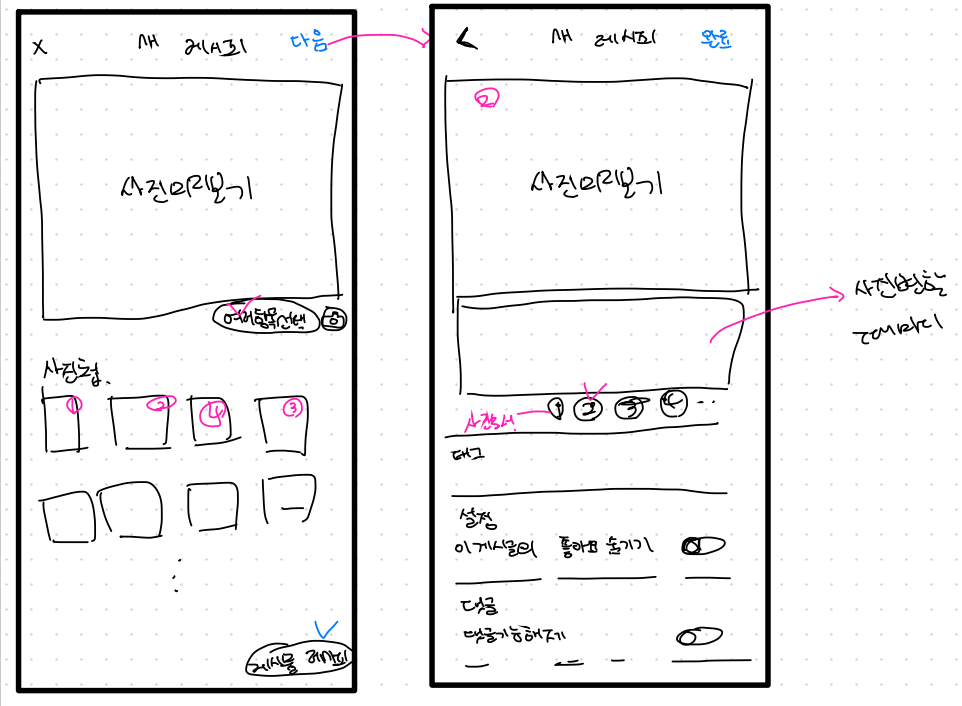 X 새 레시피 다음
사진미리보기
여러항목선택
사진첩.
1 2 4 3
게시물 레시피
< 새 레시피 완료
2
사진미리보기
사진변환
1 2 3 4 ..
사진순서
태그
설정
이 게시글의 좋아요 숨기기
댓글
댓글기능해제